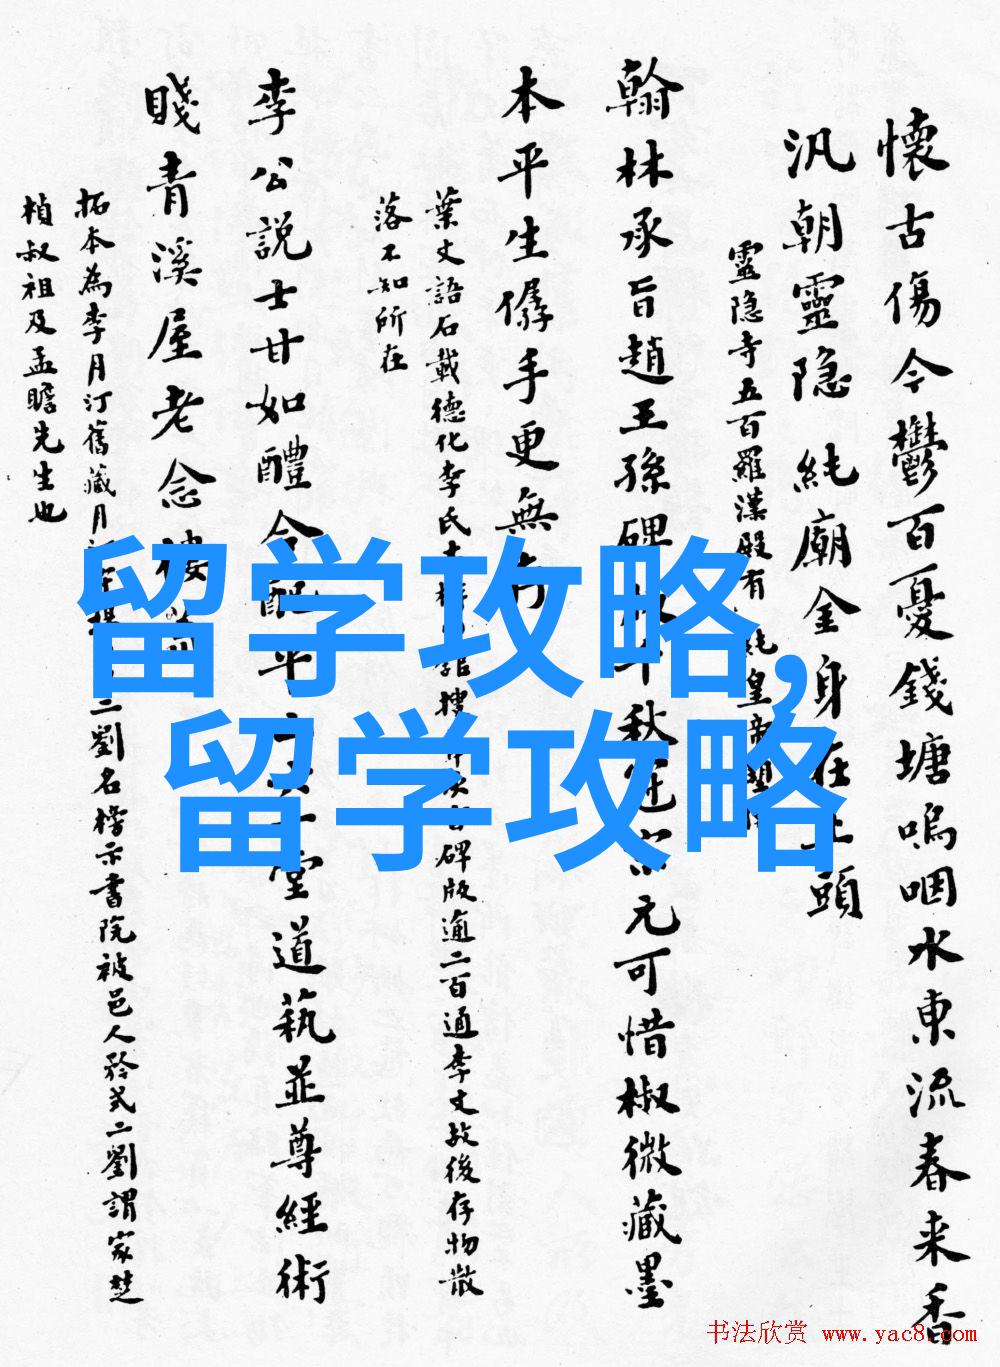 懷古傷今鬱百憂錢塘嗚咽水東流春来香
汎朝靈隐純廟金身在上頭
靈隐寺五百羅漢殿有純皇帝塑像
翰林承旨趙王孫碑版千秋近宗元可惜椒微藏墨
本平生儔手更無
葉文語石載德化李氏
碑版逾二百通李文故後存物散
落不知所在
李公説士甘如醴令配平
堂道蓺並尊經術
賤青溪屋老念樓
拓本為李月汀舊藏月
二劉名榜示書院被邑人矜式二劉謂家楚
楨叔祖及孟瞻先生也
留学攻略,
留学攻略
书法欣赏 www.yac8.com